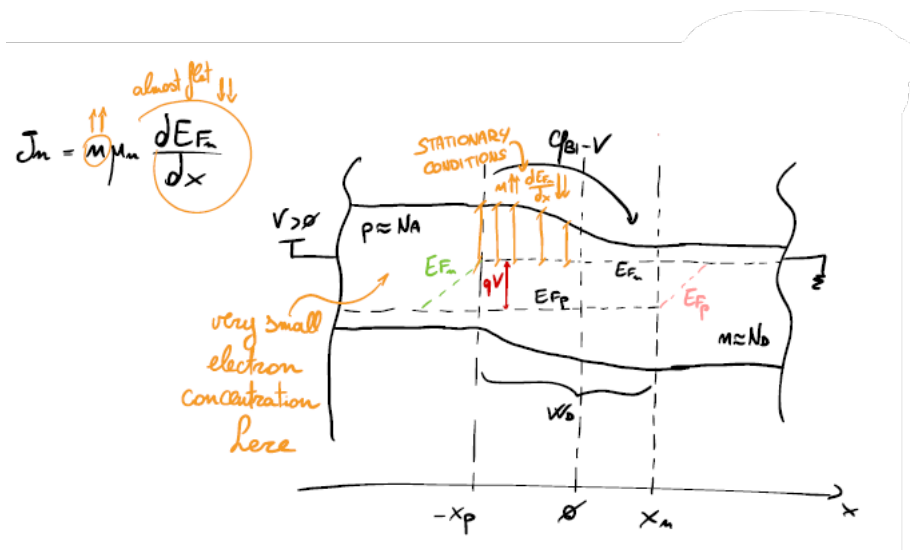 almost flat ↓↓
↑↑
Jn = n μn dEFn/dx
STATIONARY
CONDITIONS
φBI-V
n↑↑ dEFn/dx ↓↓
V>0
p≈NA
EFn
qV
EFn
EFp
EFp
very small
electron
concentration
here
n≈ND
WD
-xp
0
xn
x